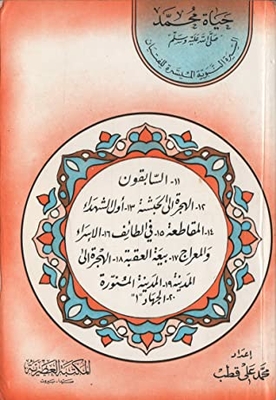 حياة محمد
صلى الله عليه وسلم
السيرة النبوية الميسرة للفتيان
١١- السابقون
١٢- الهجرة إلى الحبشة ١٣- أول الشهداء
١٤- المقاطعة ١٥- في الطائف ١٦- الإسراء
والمعراج ١٧- بيعة العقبة ١٨- الهجرة إلى
المدينة ١٩- المدينة المنورة
٢٠- الجهاد "١"
إعداد
محمد علي قطب
المكتبة العصرية
صيدا - بيروت